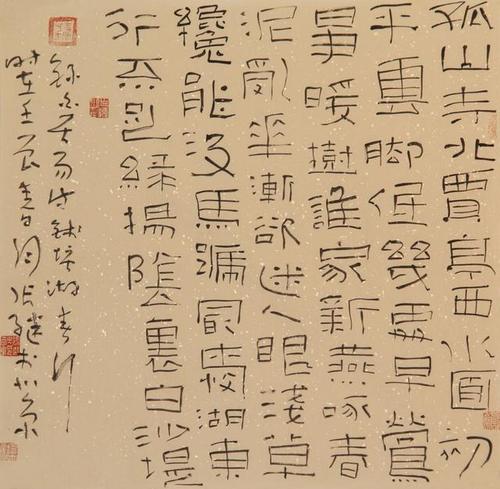 孤山寺北賈亭西水面初
平雲脚低幾處早鶯
爭暖樹誰家新燕啄春
泥亂華漸欲迷人眼淺草
纔能沒馬蹄最愛湖東
行不足綠楊陰裏白沙堤
錄白居易詩錢塘湖春行
時在壬辰春日張繼於北京